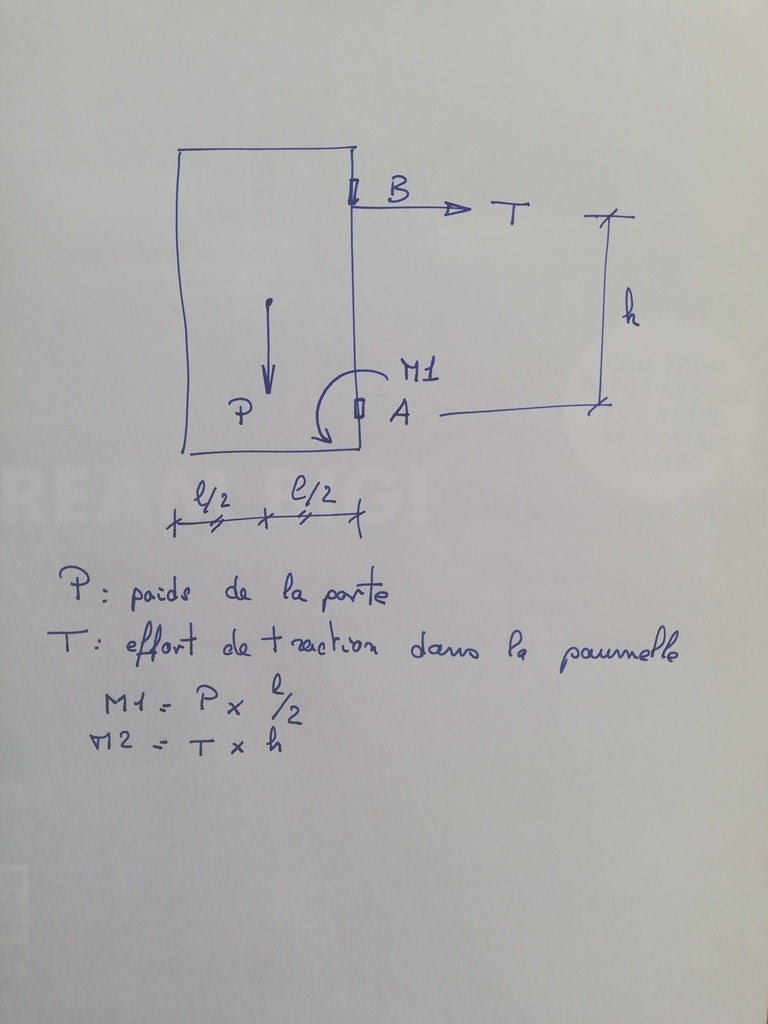 B
T
h
M1
P
A
l/2
l/2
P: poids de la porte
T: effort de traction dans la paumelle
M1 = P x l/2
M2 = T x h